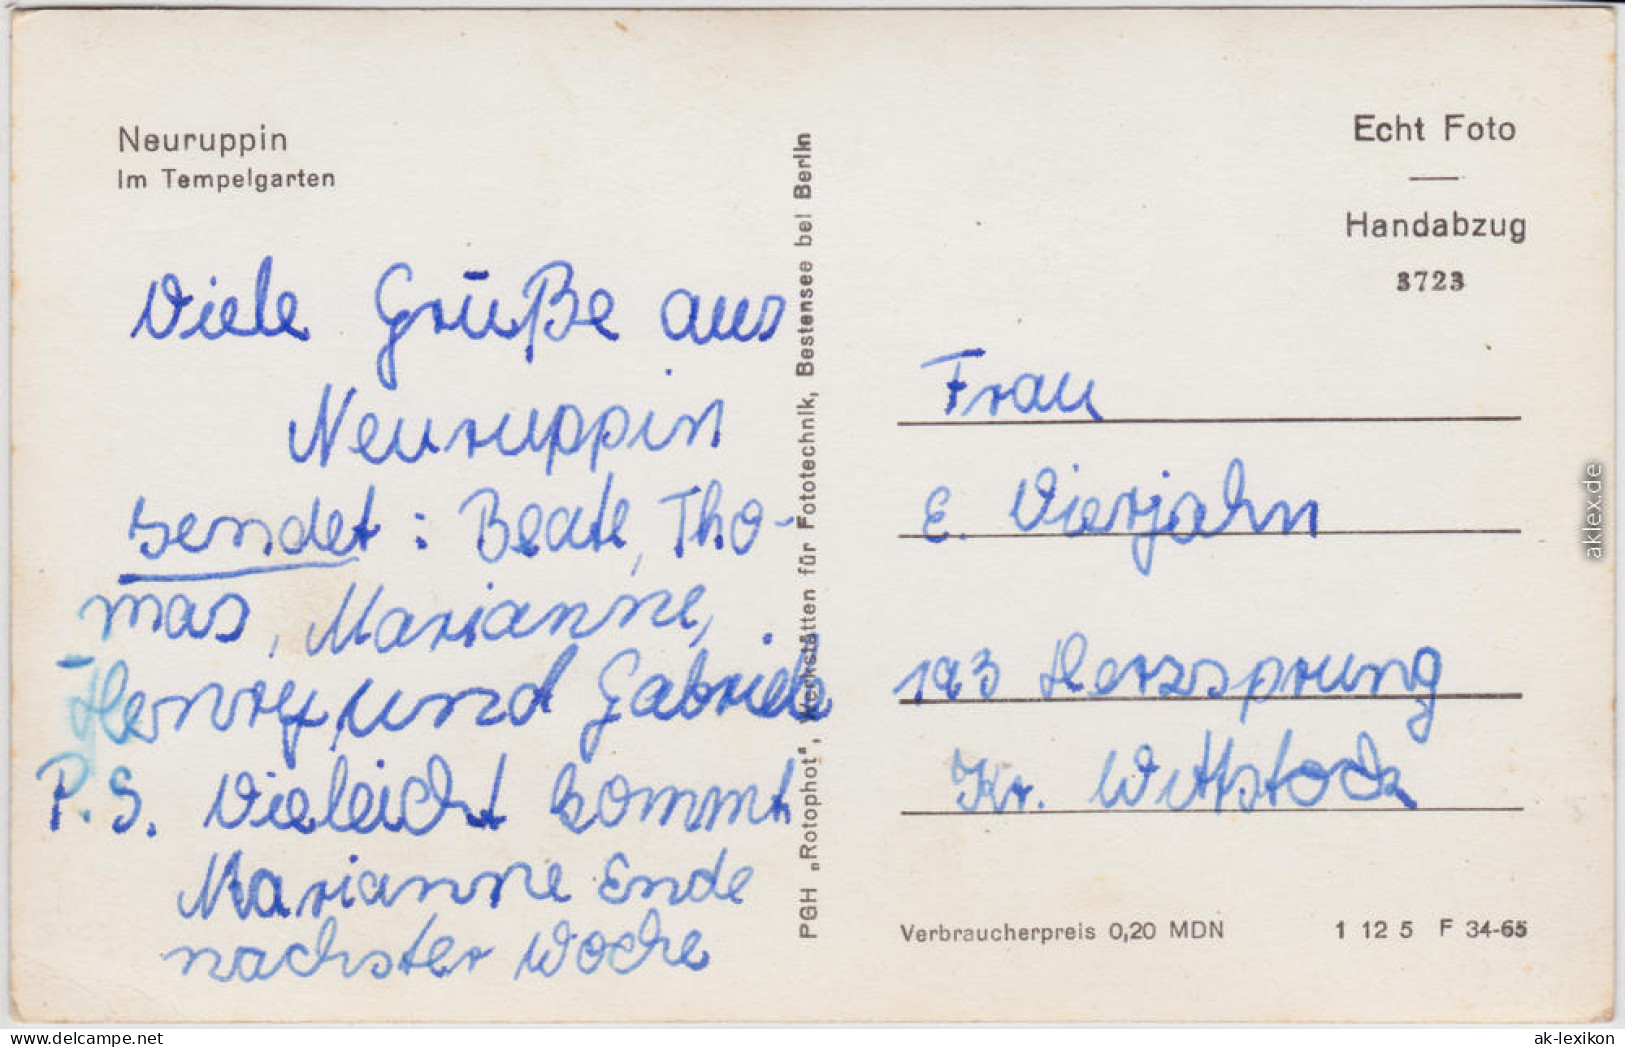 Neuruppin
Im Tempelgarten
Viele Grüße aus
Neuruppin
sendet: Beate, Tho-
mas, Marianne,
Henry und Gabriele
P.S. Vieleicht kommt
Marianne Ende
nachster Woche
PGH „Rotophot“, Werkstätten für Fototechnik, Bestensee bei Berlin
Echt Foto
Handabzug
3723
Frau
E. Vierjahn
193 Herzsprung
Kr. Wittstock
Verbraucherpreis 0,20 MDN 1 12 5 F 34-65
aklex.de
©akpool.com ak-lexikon